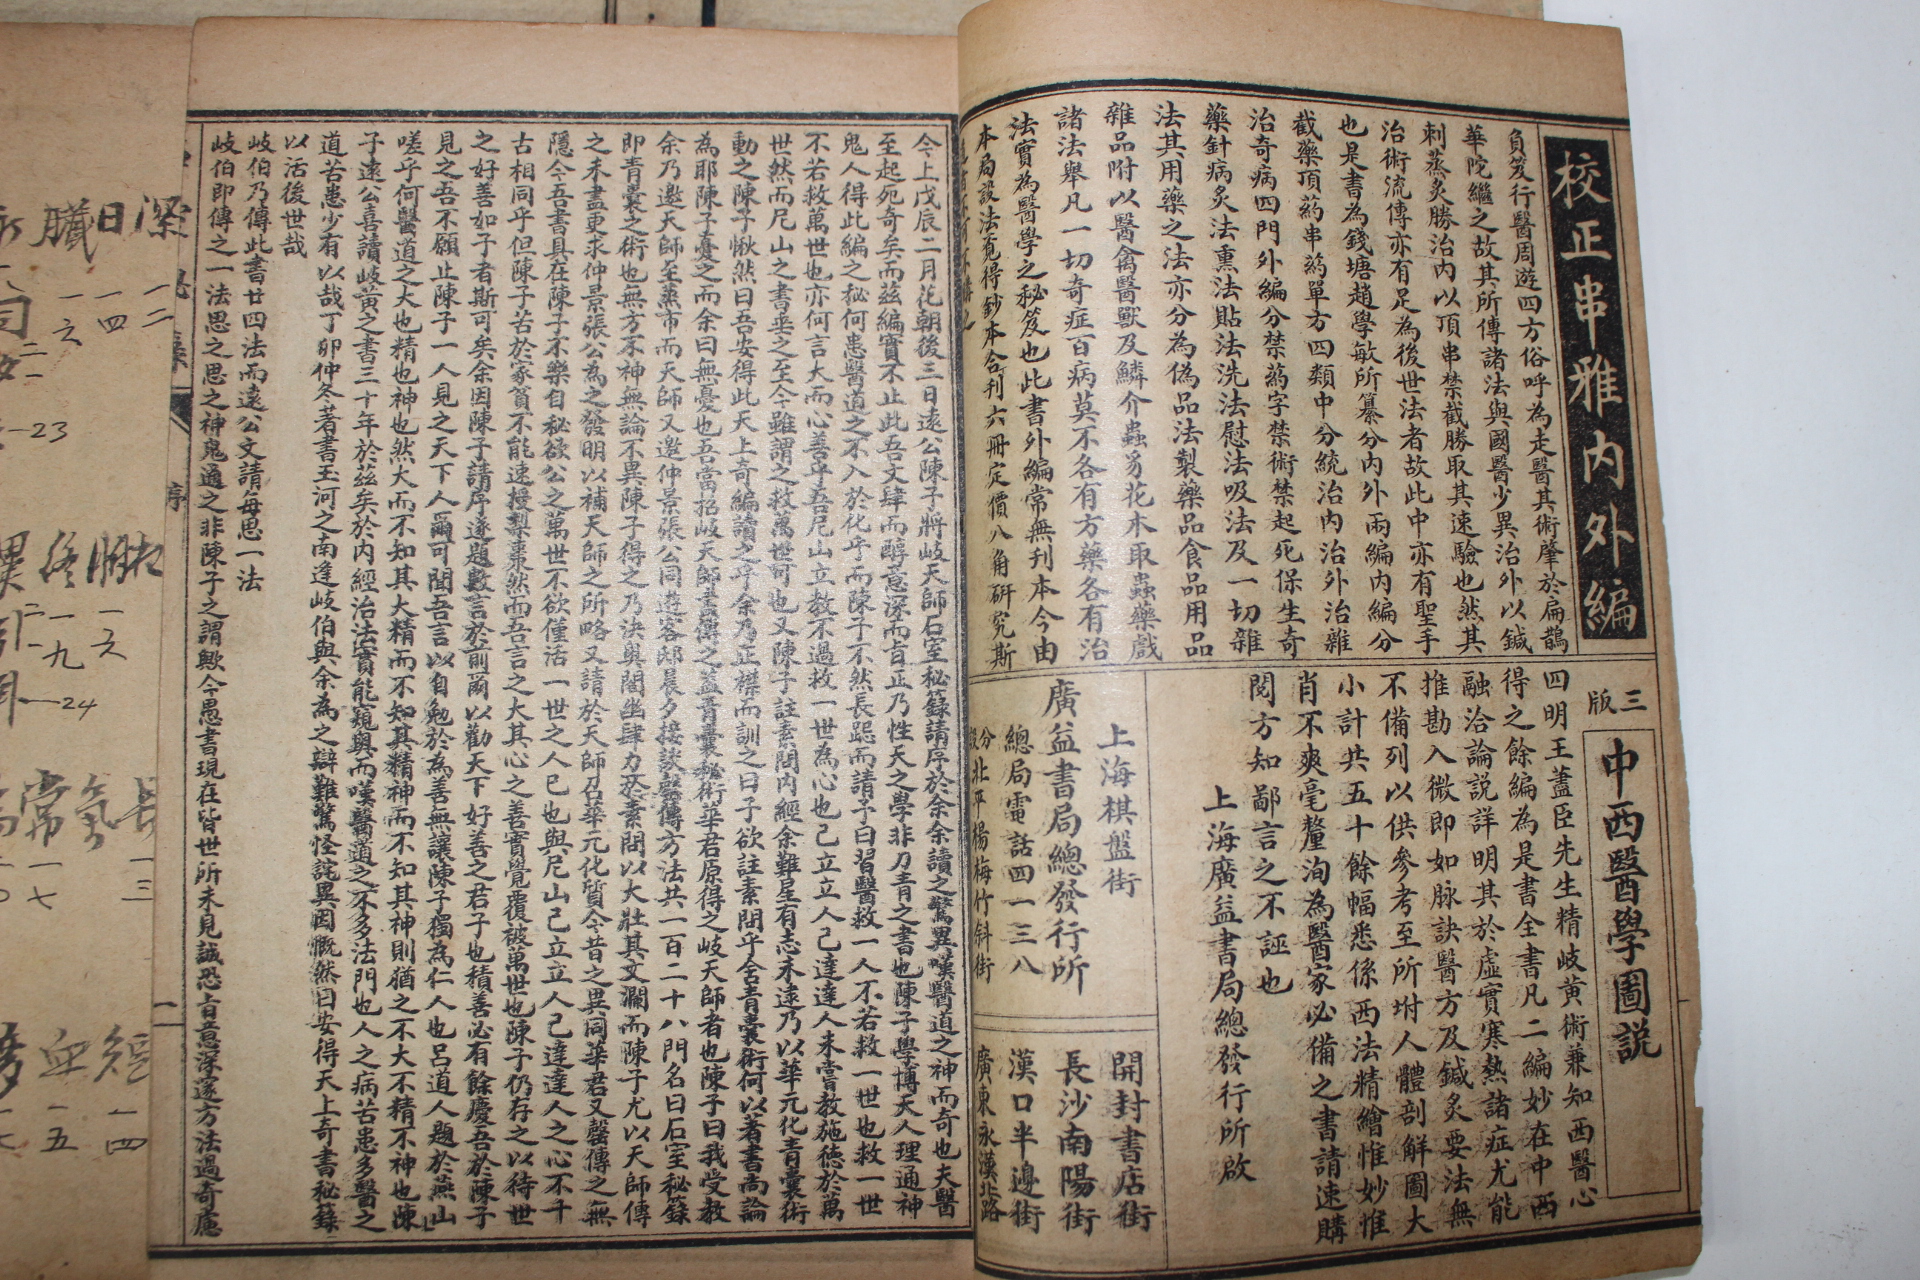 校正串雅內外編
負笈行醫周遊四方俗呼為走醫其術肇於扁鵲
華陀繼之故其所傳諸法與國醫少異治外以鍼
刺蒸灸勝治內以頂串禁截勝取其速驗也然其
治術流傳亦有足為後世法者故此中亦有聖手
也是書為錢塘趙學敏所纂分內外兩編內編分
截藥頂葯串葯單方四類中分統治內治外治雜
治奇病四門外編分禁葯字禁術禁起死保生奇
藥針病灸法熏法貼法洗法慰法吸法及一切雜
法其用藥之法亦分為偽品法製藥品食品用品
雜品附以醫禽醫獸及鱗介蟲豸花木取蟲藥戲
諸法舉凡一切奇症百病莫不各有方藥各有治
法實為醫學之秘笈也此書外編常無刊本今由
本局設法覓得鈔本合刊六冊定價八角研究斯
三版
中西醫學圖説
四明王藎臣先生精岐黄術兼知西醫心
得之餘編為是書全書凡二編妙在中西
融洽論説詳明其於虛實寒熱諸症尤能
推勘入微即如脉訣醫方及鍼灸要法無
不備列以供參考至所坿人體剖解圖大
小計共五十餘幅悉係西法精繪惟妙惟
肖不爽毫釐洵為醫家必備之書請速購
閱方知鄙言之不誣也
上海廣益書局總發行所啟
上海棋盤街
廣益書局總發行所
總局電話四一三八
分北平楊梅竹斜街
開封書店街
長沙南陽街
漢口半邊街
廣東永漢北路
今上戊辰二月花朝後三日遠公陳子將岐天師石室秘籙請序於余余讀之驚異嘆醫道之神而奇也夫醫
至起死奇矣而兹編實不止此吾文肆而醇意深而旨正乃性天之學非刀青之書也陳子學博天人理通神
鬼人得此編之秘何患醫道之不入於化乎而陳子不然長跽而請予曰習醫救一人不若救一世也救一世
不若救萬世也亦何言大而心善乎吾尼山立教不過救一世為心也己立立人己達達人未嘗教施德於萬
世然而尼山之書垂之至今雖謂之救萬世可也又陳子註素問内經余難星有志未逮乃以華元化青囊術
動之陳子愀然曰吾安得此天上奇編讀之乎余乃正襟而訓之曰子欲註素問乎舍青囊術何以著書尚論
為耶陳子憂之而余曰無憂也吾當招岐天師盡傳之蓋青囊秘術華君原得之岐天師者也陳子曰我受教
余乃邀天師至燕市而天師又邀仲景張公同遊客邸晨夕接談盡傳方法共一百二十八門名曰石室秘籙
即青囊之術也無方不神無論不異陳子得之乃決與闡幽肆力於素問以大壯其文瀾而陳子尤以天師傳
之未盡更求仲景張公為之發明以補天師之所略又請於天師召華元化質今昔之異同華君又罄傳之無
隱今吾書具在陳子不樂自秘欲公之萬世不欲僅活一世之人已也與尼山己立立人己達達人之心不千
古相同乎但陳子苦於家貧不能速授梨棗然而吾言之大其心之善實覺覆被萬世也陳子仍存之以待世
之好善如子者斯可矣余因陳子請序遂題數言於前爾以勸天下好善之君子也積善必有餘慶吾於陳子
見之吾不願止陳子一人見之天下人爾可聞吾言以自勉於為善無讓陳子獨為仁人也呂道人題於燕山
嗟乎何醫道之大也精也神也然大而不知其大精而不知其精神而不知其神則猶之不大不精不神也陳
子遠公喜讀岐黃之書三十年於茲矣於内經治法實能窺奥而嘆醫道之不多法門也人之病苦患多醫之
道苦患少有以哉丁卯仲冬著書玉河之南逢岐伯與余為之辯難驚怪詫異因慨然曰安得天上奇書秘籙
以活後世哉
岐伯乃傳此書廿四法而遠公文請每思一法
岐伯即傳之一法思之思之神鬼通之非陳子之謂歟今愚書現在皆世所未見誠恐旨意深邃方法過奇慮
序
一
深 一二
日 一四
臟 一六
脚 一六
一九
23
24
長 一三
氣
常 一七
短 一四
血 一五